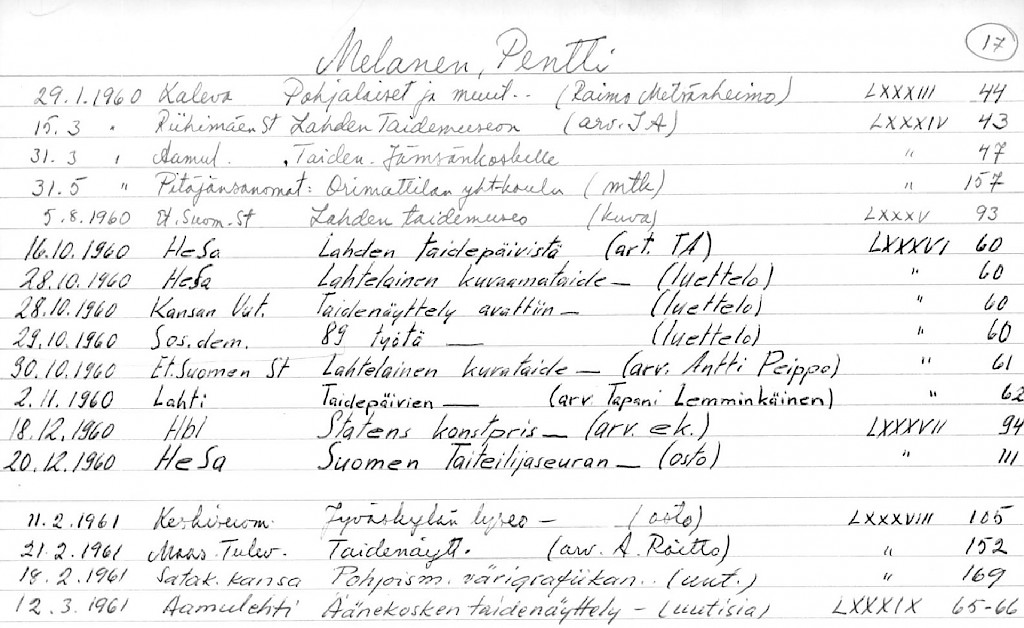 17
Melanen, Pentti
29.1.1960 Kaleva Pohjalaiset ja muut.. (Raimo Metsänheimo) LXXXIII 44
15.3 " Riihimäen St Lahden Taidemuseon (arv. TA) LXXXIV 43
31.3 " Aamul. Taiden. Jämsänkoskelle " 47
31.5 " Pitäjänsanomat: Orimattilan yht-koulu (mtk) " 157
5.8.1960 Et.Suom.St Lahden taidemuseo (kuva) LXXXV 93
16.10.1960 HeSa Lahden taidepäivistä (art. TA) LXXXVI 60
28.10.1960 HeSa Lahtelainen kuvaamataide — (luettelo) " 60
28.10.1960 Kansan Vat. Taidenäyttely avattiin — (luettelo) " 60
29.10.1960 Sos.dem. 89 työtä — (luettelo) " 60
30.10.1960 Et.Suomen St Lahtelainen kuvataide — (arv. Antti Peippo) " 61
2.11.1960 Lahti Taidepäivien — (arv. Tapani Lemminkäinen) " 62
18.12.1960 Hbl Statens konstpris — (arv. e.k.) LXXXVII 94
20.12.1960 HeSa Suomen Taiteilijaseuran — (osto) " 111
11.2.1961 Keskisuom. Jyväskylän lyseo — (osto) LXXXVIII 105
21.2.1961 Maas. Tulev. Taidenäytt. (arv. A. Röitto) " 152
18.2.1961 Satak. kansa Pohjoism. värigrafiikan.. (uut.) " 169
12.3.1961 Aamulehti Äänekosken taidenäyttely — (uutisia) LXXXIX 65-66